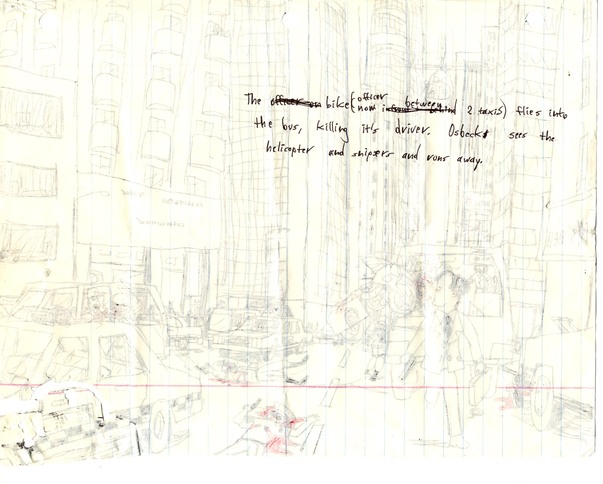 The officer on bike (officer now between 2 taxis) flies into
the bus, killing it's driver. Osbeck sees the
helicopter and snipers and runs away.